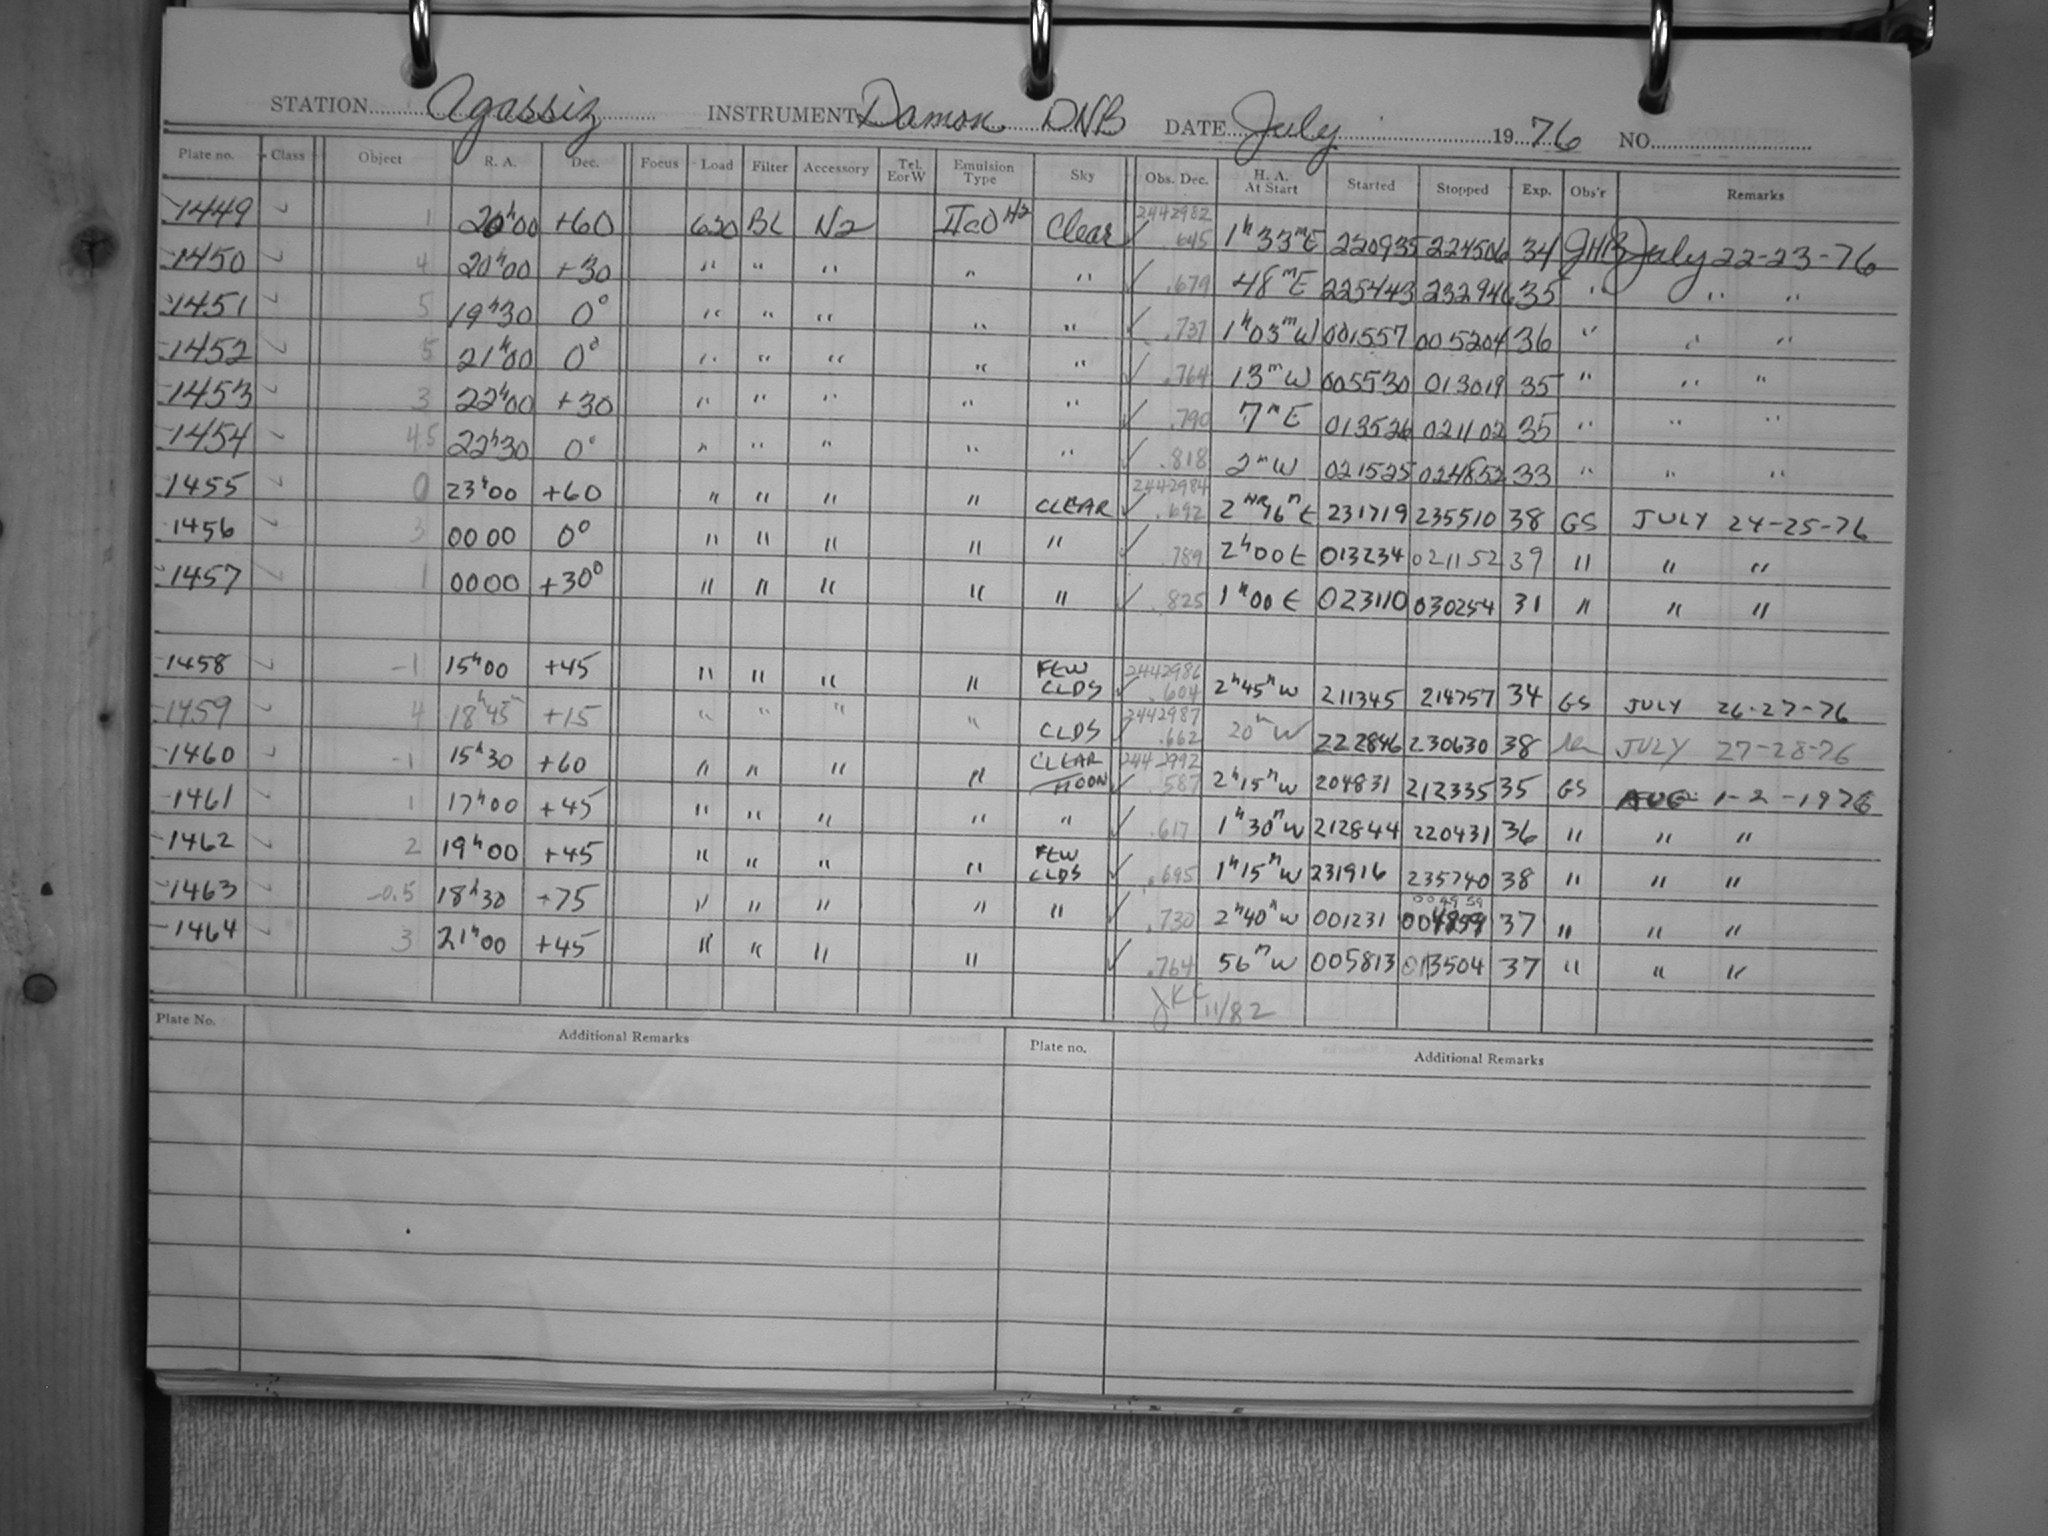 STATION Agassiz INSTRUMENT Damon DNB DATE July 1976 NO.
Plate no. Class Object R. A. Dec. Focus Load Filter Accessory Tel. E or W Emulsion Type Sky Obs. Dec. H. A. At Start Started Stopped Exp. Obs'r Remarks
1449 ✓ 1 20h00 +60 620 BL N2 IIaO H2 Clear ✓ 2442982 .645 1h33mE 220935 224506 34 GHB July 22-23-76
1450 ✓ 4 20h00 +30 " " " " " ✓ .679 48mE 225443 232946 35 " " "
1451 ✓ 5 19h30 0° " " " " " ✓ .737 1h03mW 001557 005204 36 " " "
1452 ✓ 5 21h00 0° " " " " " ✓ .764 13mW 005530 013019 35 " " "
1453 ✓ 3 22h00 +30 " " " " " ✓ .790 7mE 013526 021102 35 " " "
1454 ✓ 4.5 22h30 0° " " " " " ✓ .818 2mW 021525 024852 33 " " "
1455 ✓ 0 23h00 +60 " " " " CLEAR ✓ 2442984 .692 2HR 16mE 231719 235510 38 GS JULY 24-25-76
1456 ✓ 3 0000 0° " " " " " ✓ .789 2h00E 013234 021152 39 " " "
1457 ✓ 1 0000 +30° " " " " " ✓ .825 1h00E 023110 030254 31 " " "
1458 ✓ -1 15h00 +45 " " " " FEW CLDS ✓ 2442986 .604 2h45mW 211345 214757 34 GS JULY 26-27-76
1459 ✓ 4 18h45m +15 " " " " CLDS ✓ 2442987 .662 20mW 222846 230630 38 JULY 27-28-76
1460 ✓ -1 15h30 +60 " " " " CLEAR MOON ✓ 2442992 .587 2h15mW 204831 212335 35 GS AUG 1-2-1976
1461 ✓ 1 17h00 +45 " " " " " ✓ .617 1h30mW 212844 220431 36 " " "
1462 ✓ 2 19h00 +45 " " " " FEW CLDS ✓ .695 1h15mW 231916 235740 38 " " "
1463 ✓ -0.5 18h30 +75 " " " " " ✓ .730 2h40mW 001231 004959 37 " " "
1464 ✓ 3 21h00 +45 " " " " ✓ .764 56mW 005813 013504 37 " " "
JKC 11/82
Plate No. Additional Remarks Plate no. Additional Remarks